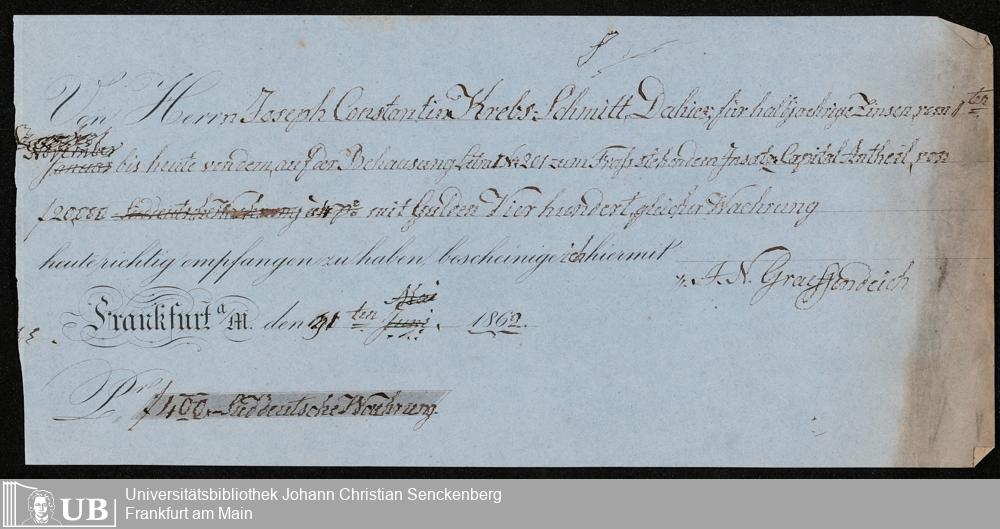 Von Herrn Joseph Constantin Krebs-Schmitt, Dahier, für halbjaehrige Zinsen, vom 1ten
November
Januar bis heute von dem, auf der Behausung zum Frass stehenden Insatz-Capital Antheil, von
f 20,000 Süddeutsche Waehrung mit Gulden Vier hundert, gleicher Waehrung
heute richtig empfangen zu haben, bescheinige ich hiermit
A. N. Graeffendeich
Mai
Frankfurt a/M. den 31 ten Juni. 1862.
Pr. f 400,- Süddeutsche Waehrung.
UB
Universitätsbibliothek Johann Christian Senckenberg
Frankfurt am Main